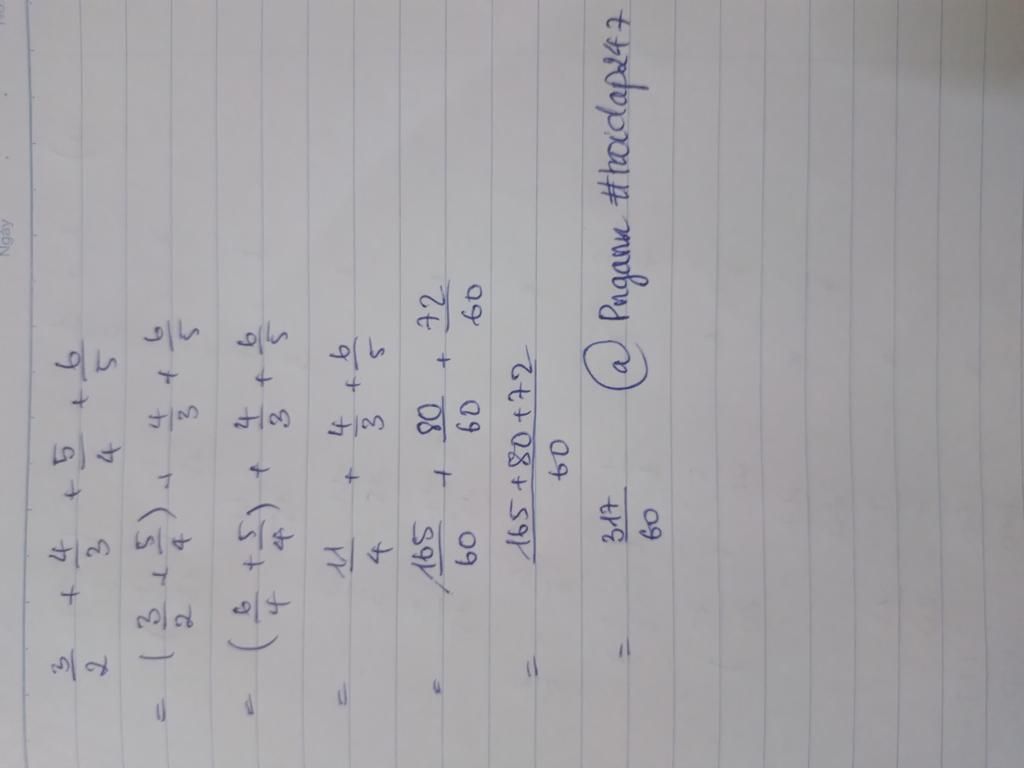 Ngày
3/2 + 4/3 + 5/4 + 6/5
= (3/2 + 5/4) + 4/3 + 6/5
= (6/4 + 5/4) + 4/3 + 6/5
= 11/4 + 4/3 + 6/5
= 165/60 + 80/60 + 72/60
= 165 + 80 + 72/60
= 317/60 @ Pngann #hoidap247